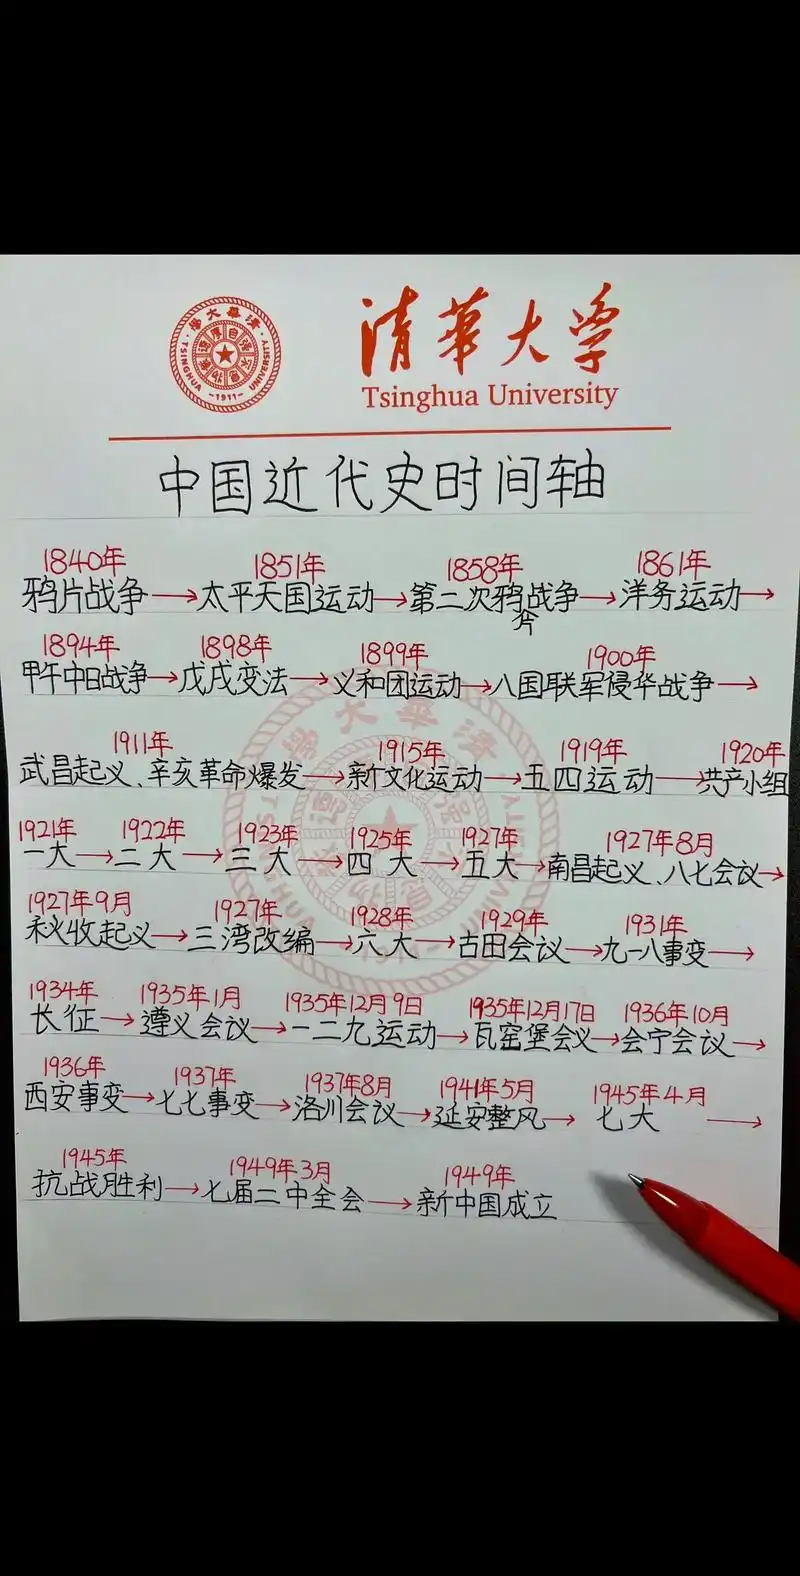 清華大学
Tsinghua University
清華大学
TSINGHUA UNIVERSITY
自强不息
厚德载物
-1911-
中国近代史时间轴
1840年 1851年 1858年 1861年
鸦片战争→太平天国运动→第二次鸦片战争→洋务运动→
1894年 1898年 1899年 1900年
甲午中日战争→戊戌变法→义和团运动→八国联军侵华战争→
1911年 1915年 1919年 1920年
武昌起义、辛亥革命爆发→新文化运动→五四运动→共产小组
1921年 1922年 1923年 1925年 1927年 1927年8月
一大→二大→三大→四大→五大→南昌起义、八七会议→
1927年9月 1927年 1928年 1929年 1931年
秋收起义→三湾改编→六大→古田会议→九一八事变→
1934年 1935年1月 1935年12月9日 1935年12月17日 1936年10月
长征→遵义会议→一二九运动→瓦窑堡会议→会宁会议→
1936年 1937年 1937年8月 1941年5月 1945年4月
西安事变→七七事变→洛川会议→延安整风→七大→
1945年 1949年3月 1949年
抗战胜利→七届二中全会→新中国成立